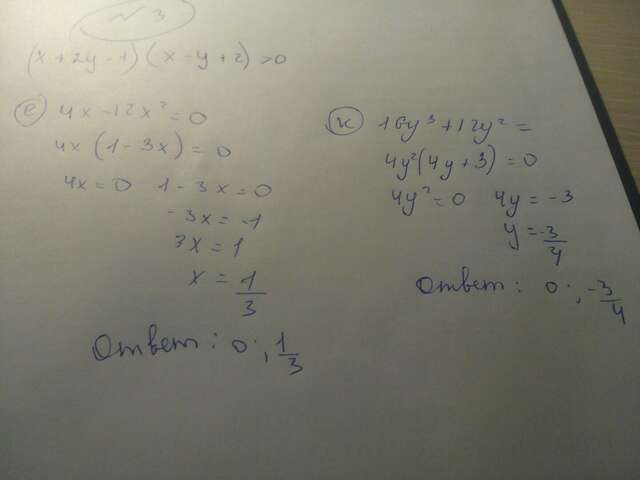 № 3
(x + 2y - 1)(x - y + 2) > 0
е) 4x - 12x² = 0
4x (1 - 3x) = 0
4x = 0 1 - 3x = 0
-3x = -1
3x = 1
x = 1/3
Ответ: 0; 1/3
ж) 16y³ + 12y² =
4y²(4y + 3) = 0
4y² = 0 4y = -3
y = -3/4
Ответ: 0; -3/4